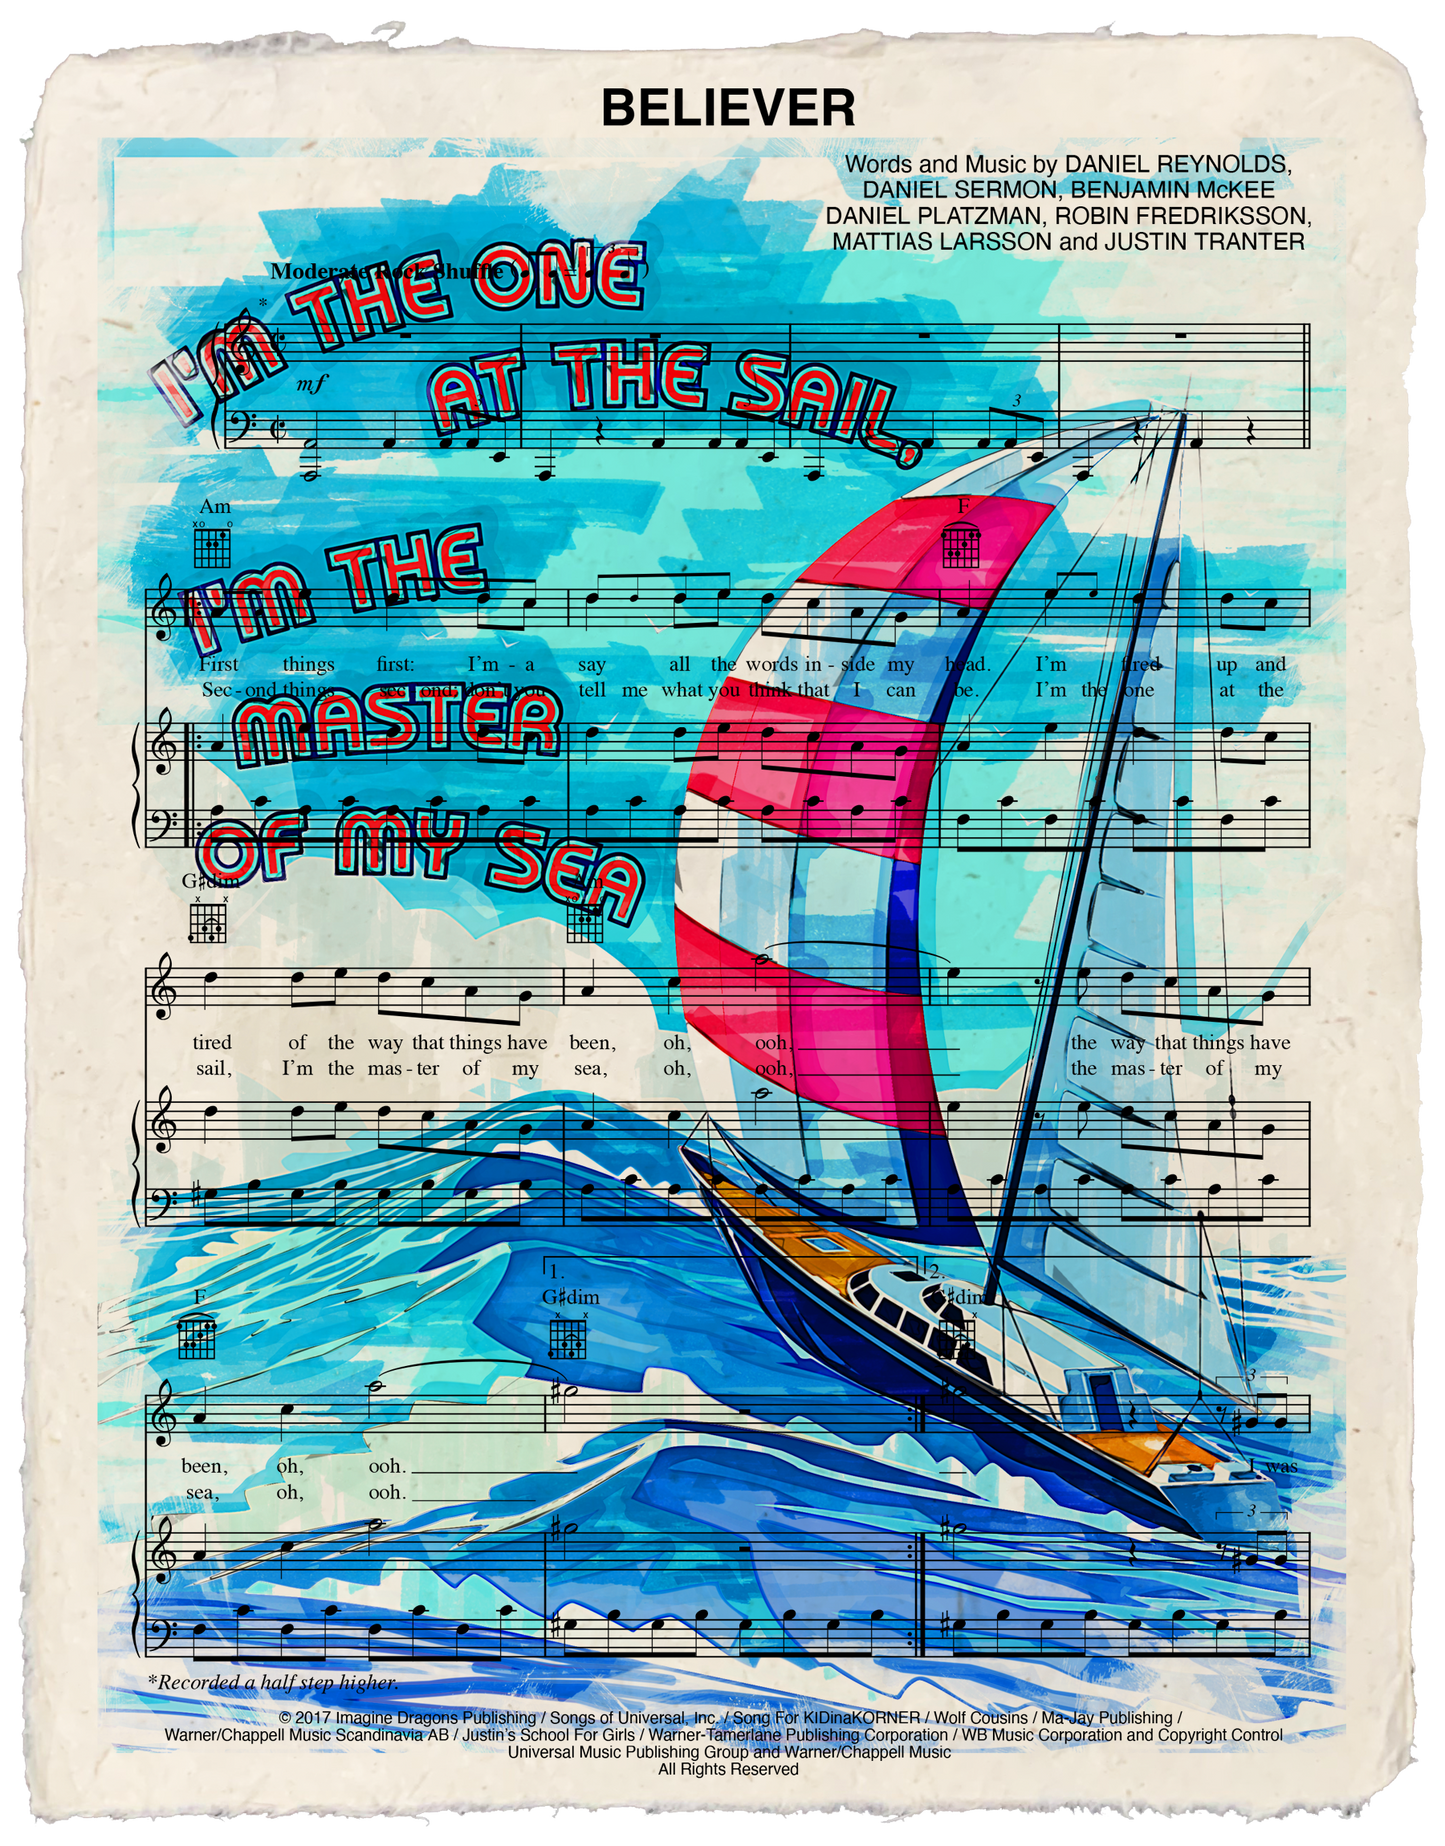 BELIEVER
Words and Music by DANIEL REYNOLDS,
DANIEL SERMON, BENJAMIN McKEE
DANIEL PLATZMAN, ROBIN FREDRIKSSON,
MATTIAS LARSSON and JUSTIN TRANTER
I'M THE ONE
AT THE SAIL,
I'M THE
MASTER
OF MY SEA
Moderate Rock Shuffle ( = 3 )
*
mf
3 3 3
Am F
First things first: I'm - a say all the words in - side my head. I'm fired up and
Sec - ond things sec - ond; don't you tell me what you think that I can be. I'm the one at the
G#dim Am
tired of the way that things have been, oh, ooh, the way that things have
sail, I'm the mas - ter of my sea, oh, ooh, the mas - ter of my
1. 2.
F G#dim G#dim
3
been, oh, ooh. I was
sea, oh, ooh.
3
*Recorded a half step higher.
© 2017 Imagine Dragons Publishing / Songs of Universal, Inc. / Song For KIDinaKORNER / Wolf Cousins / Ma-Jay Publishing /
Warner/Chappell Music Scandinavia AB / Justin's School For Girls / Warner-Tamerlane Publishing Corporation / WB Music Corporation and Copyright Control
Universal Music Publishing Group and Warner/Chappell Music
All Rights Reserved